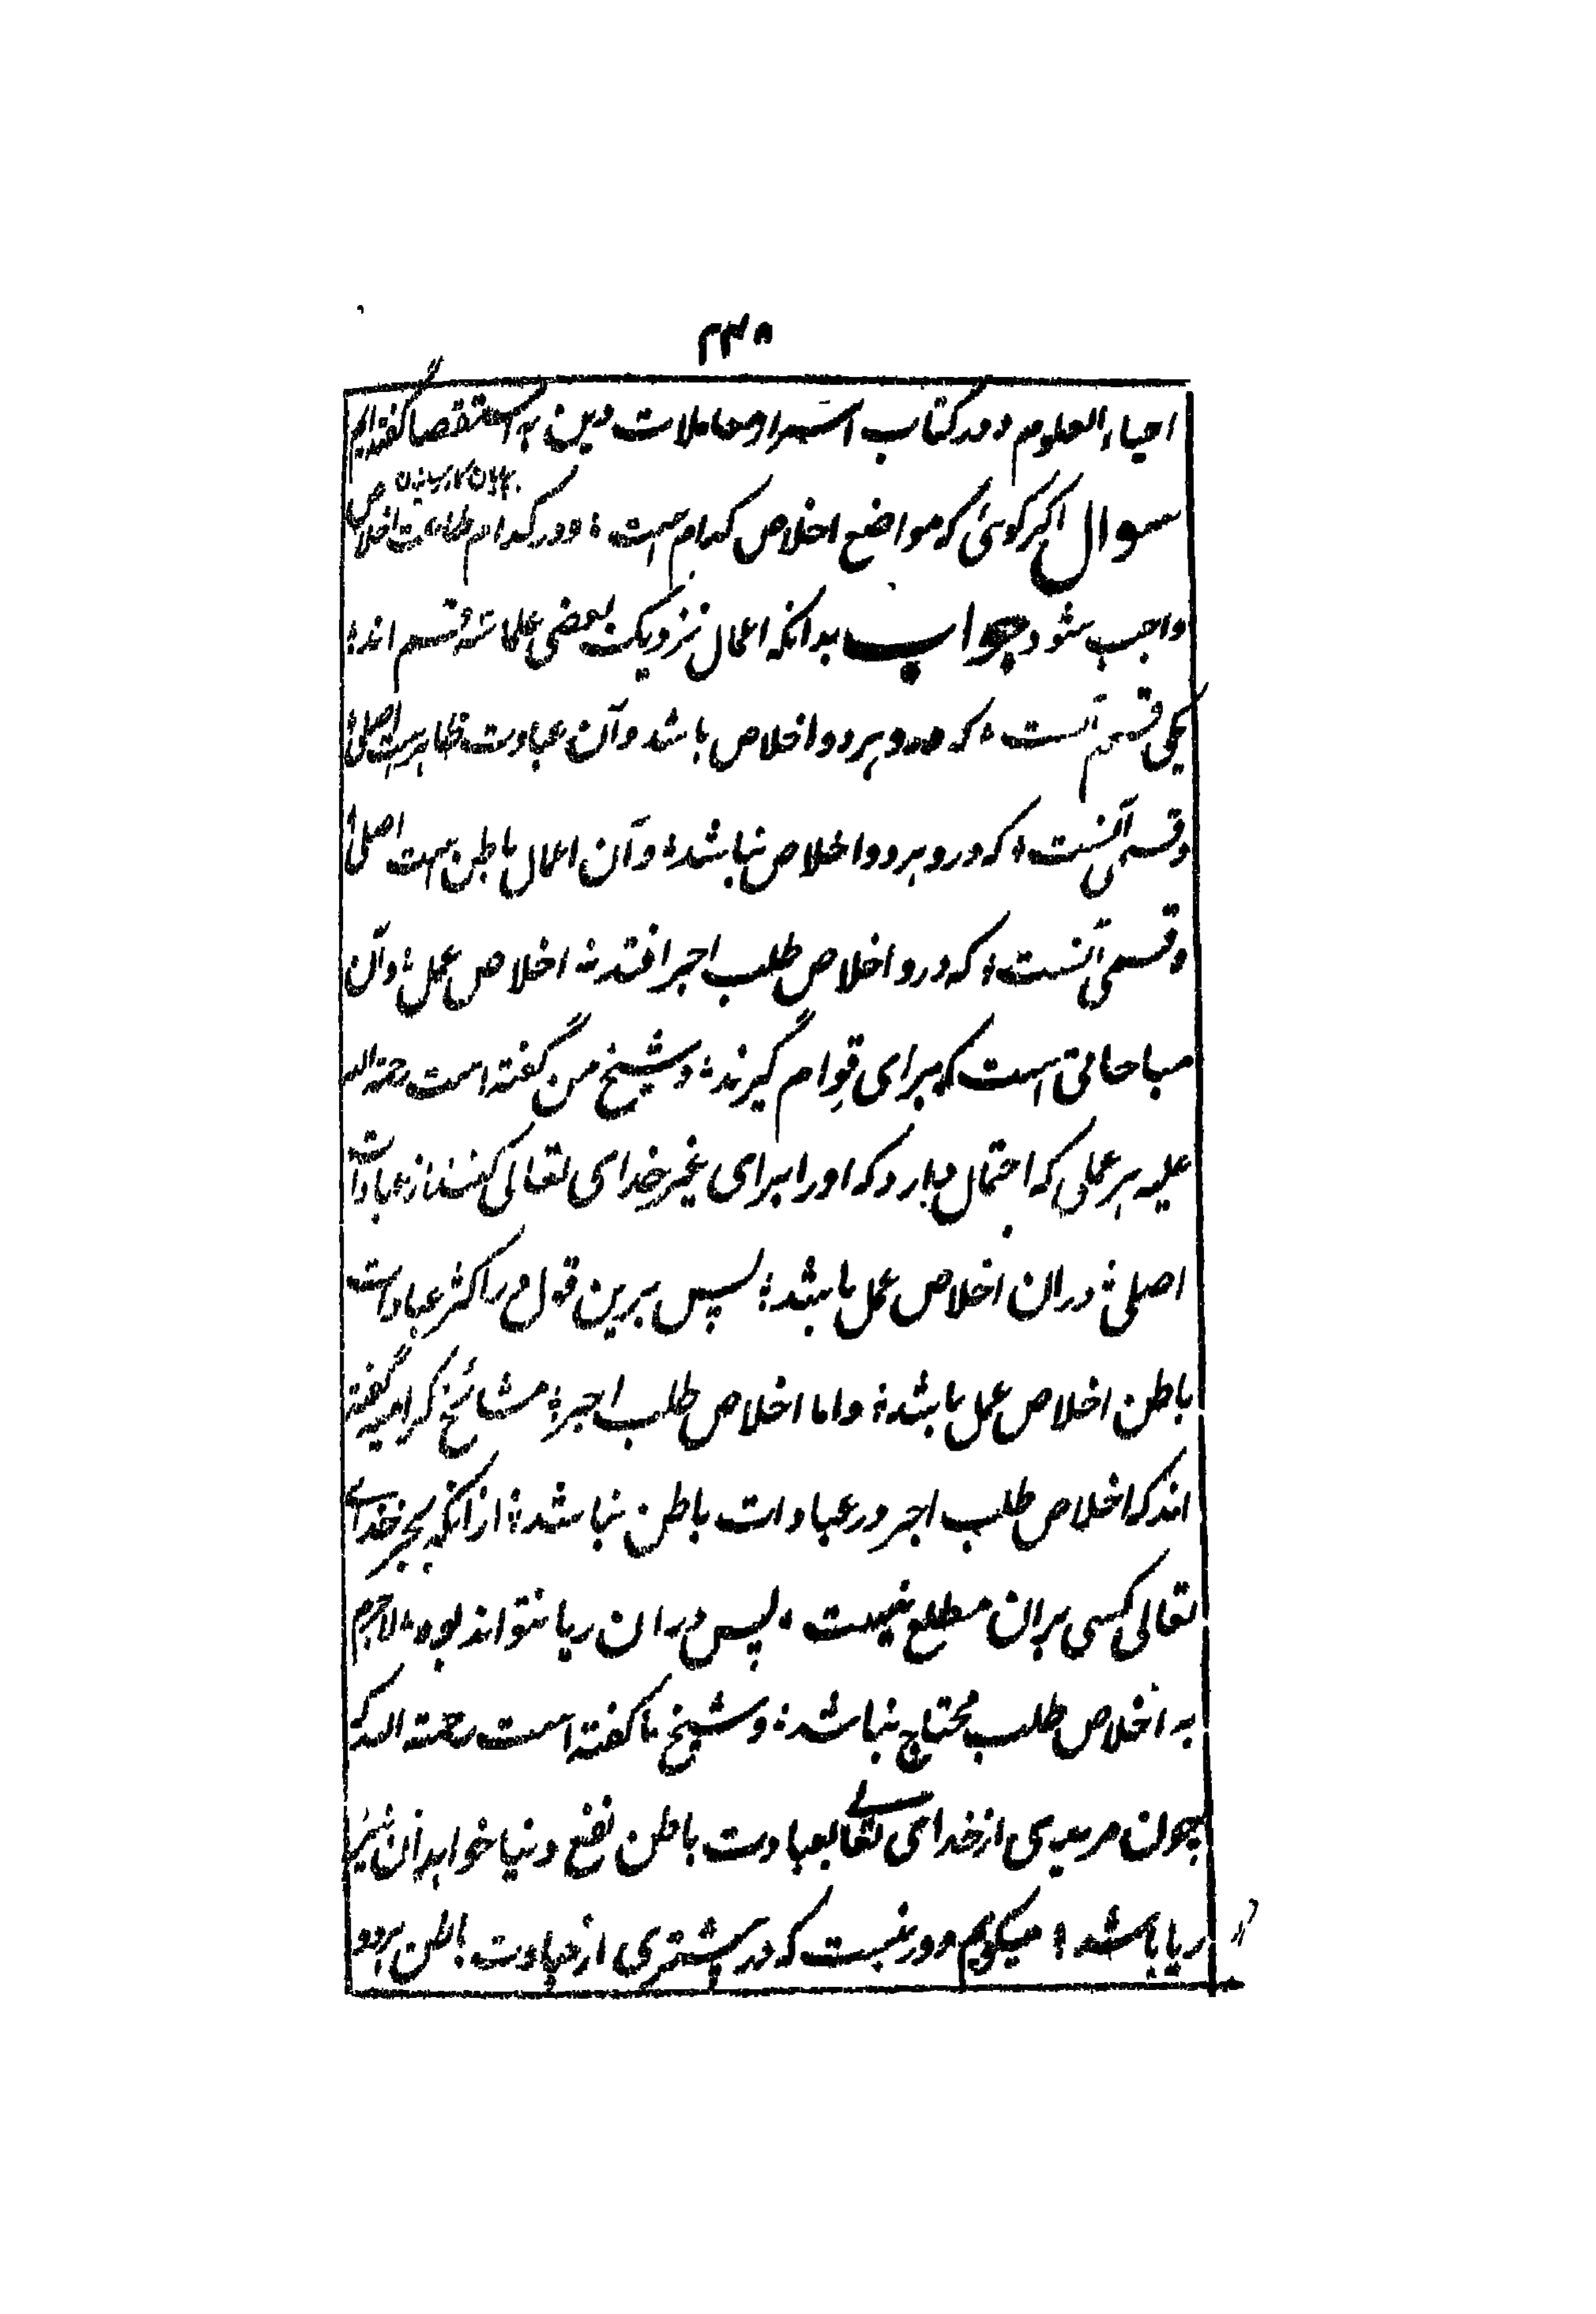 ۲۳۸
احیاء العلوم و در کتاب اسرار معاملات دین به استقصا گفته ایم
سوال اگر گوئی که مواضع اخلاص کدام است ؛ و در کدام طاعت اخلاص
واجب شود جواب بدانکه اعمال نزدیک بعضی علما سه قسم اند ؛
یکی قسم آنست ؛ که در و هر دو اخلاص باشد و آن عبادت ظاهرست اصلی ؛
و قسمی آنست ؛ که در و هر دو اخلاص نباشد ؛ و آن اعمال باطن است اصلی ؛
و قسمی آنست ؛ که در و اخلاص طلب اجر افتد نه اخلاص عمل ؛ و آن
مباحاتی است که برای قِوام گیرند ؛ و شیخ من گفته است رحمة الله
علیه هر عملی که احتمال دارد که او را برای غیر خدای تعالی کنند از عبادات
اصلی ؛ در ان اخلاص عمل باشد ؛ پس برین قول در اکثر عبادات
باطن اخلاص عمل باشد ؛ و اما اخلاص طلب اجر ؛ مشائخ کرامیه گفته
اند که اخلاص طلب اجر در عبادات باطن نباشد ؛ از آنکه بجز خدای
تعالی کسی بران مطلع نیست ، پس در ان ریا نتواند بود ، لاجرم
به اخلاص طلب محتاج نباشد ؛ و شیخ ما گفته است رحمة الله که
چون مریدی از خدای تعالے بعبادت باطن نفع دنیا خواهد آن نیز
ریا باشد ؛ میگویم دور نیست که در بیشتری از عبادت باطن هر دو